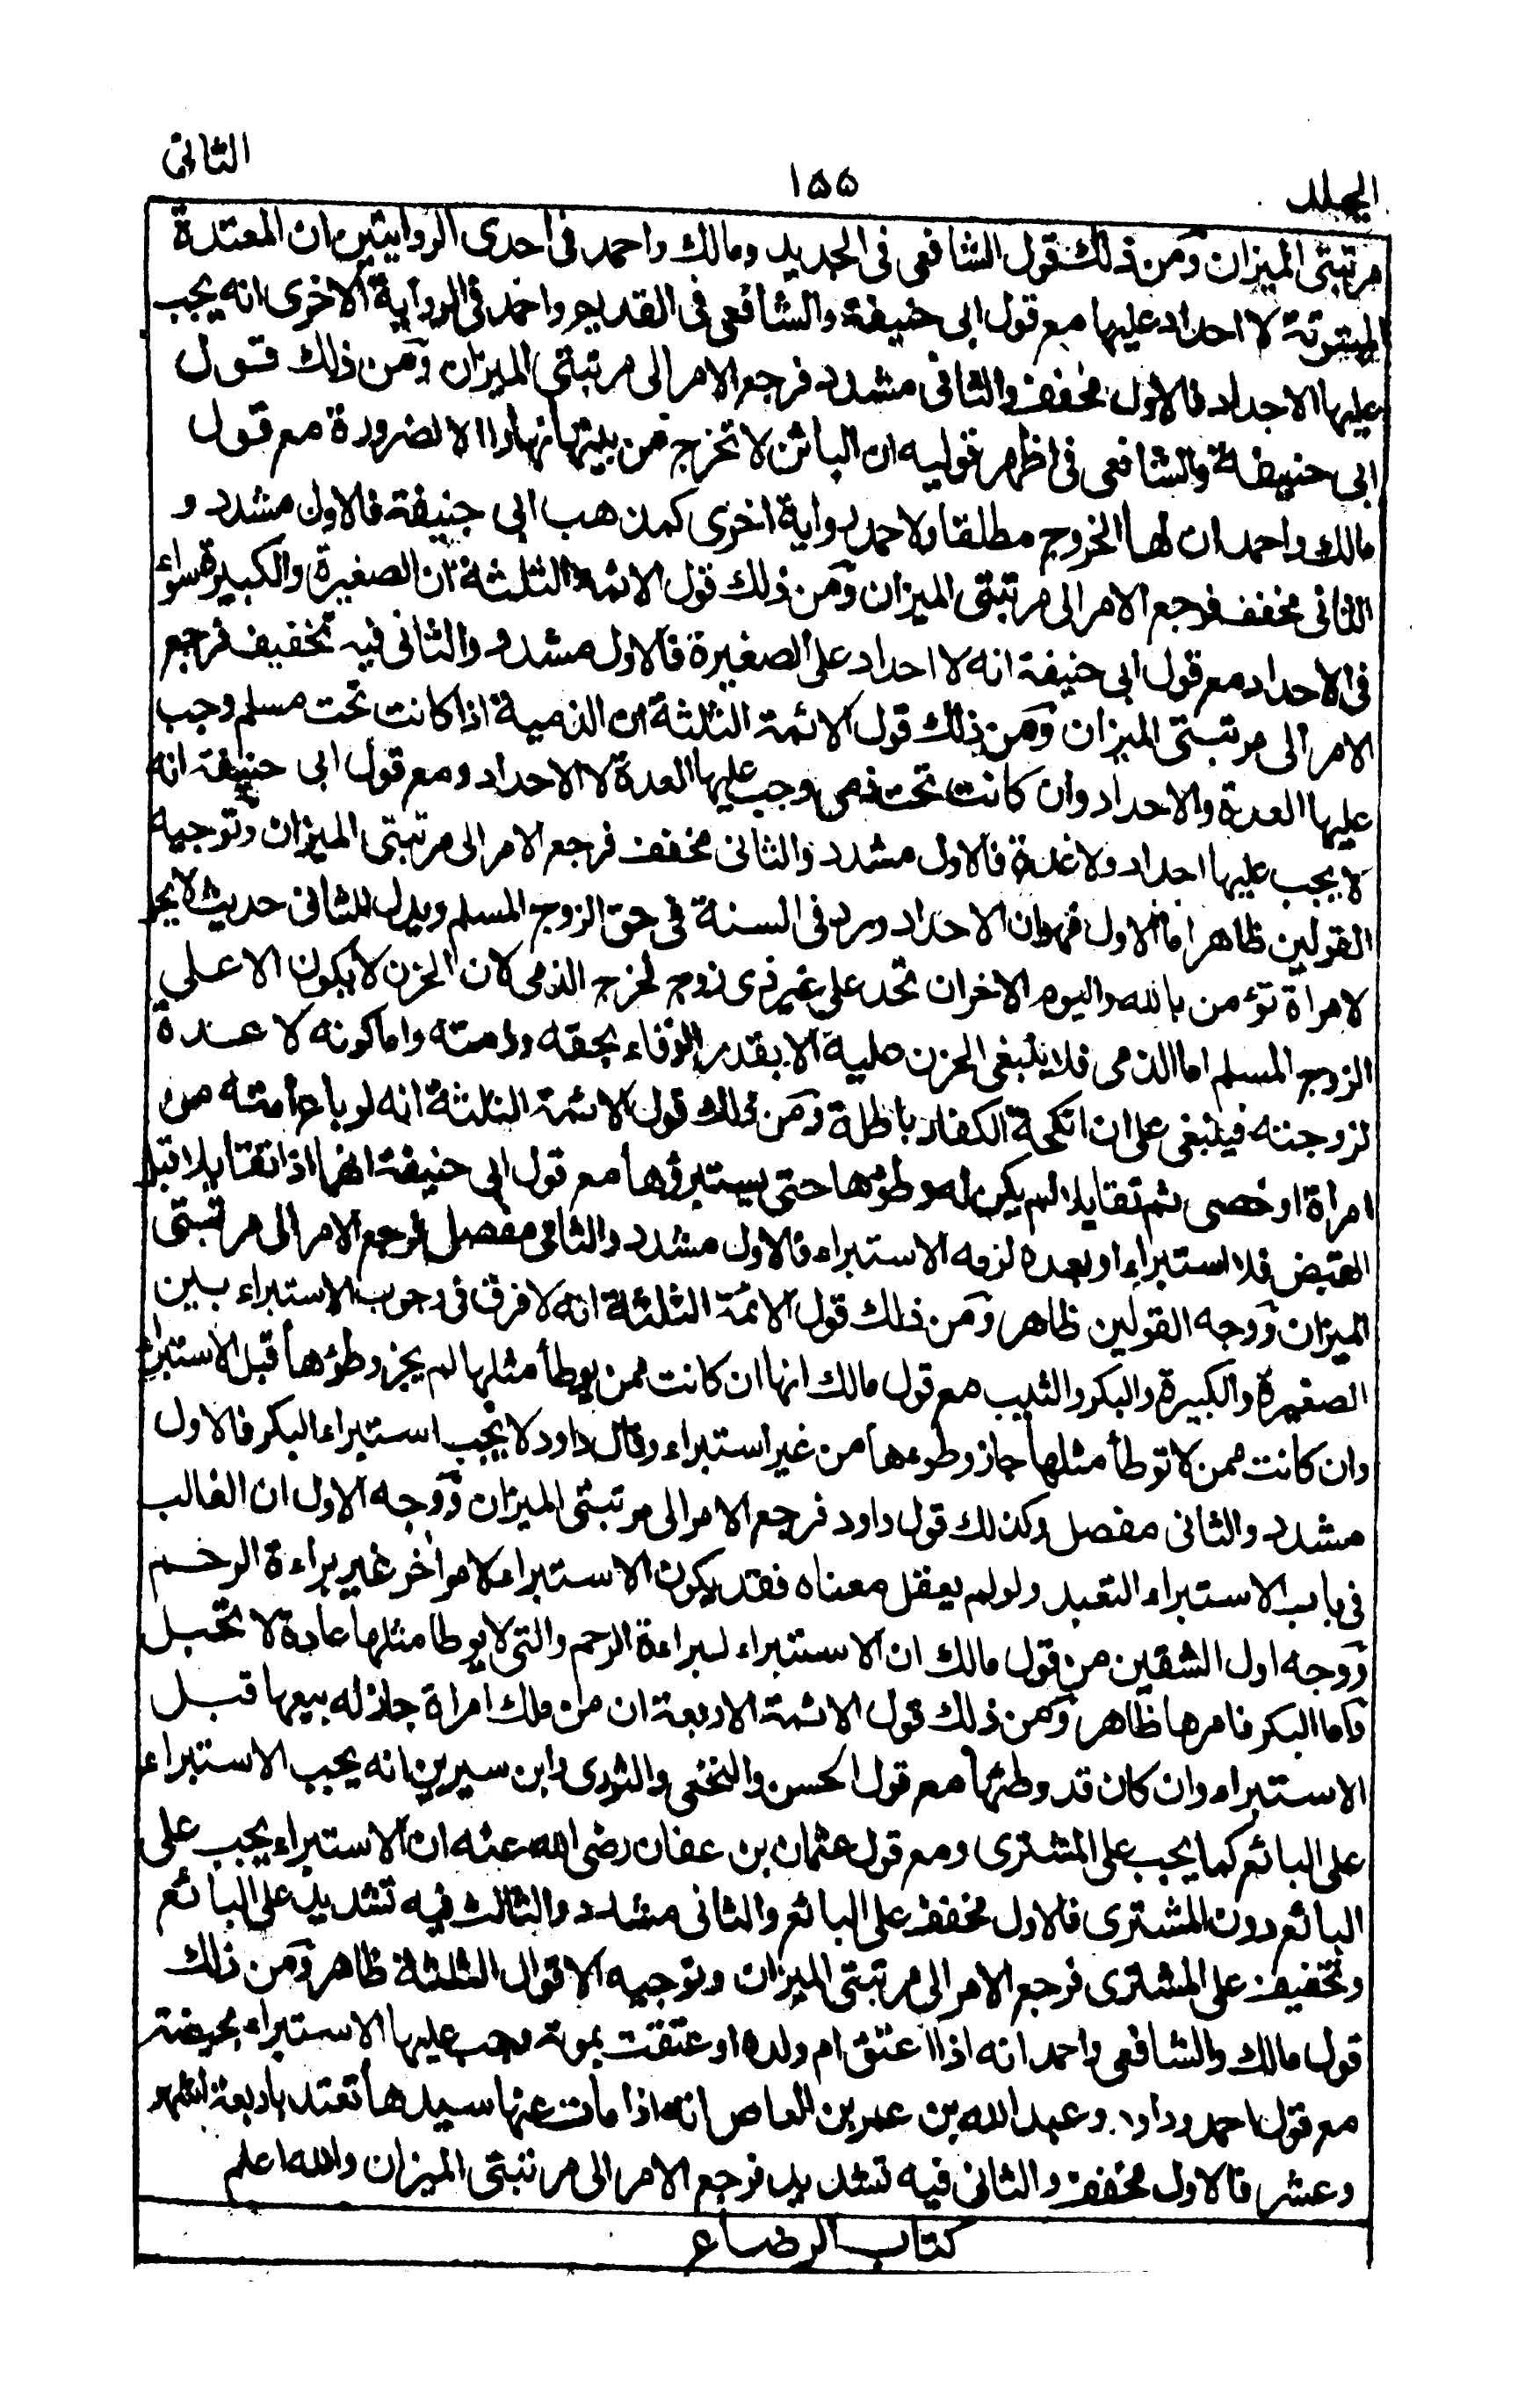 المجلد
١٥٥
الثانى
مرتبتى الميزان ومن ذلك قول الشافعى فى الجديد ومالك واحمد فى احدى الروايتين ان المعتدة
المبتوتة لا احداد عليها مع قول ابى حنيفة والشافعى فى القديم واحمد فى الرواية الاخرى انه يجب
عليها الاحداد فالاول مخفف والثانى مشدد فرجع الامر الى مرتبتى الميزان ومن ذلك قول
ابى حنيفة والشافعى فى اظهر قوليه ان البائن لا تخرج من بيتها نهارا الا لضرورة مع قول
مالك واحمد ان لها الخروج مطلقا ولاحمد رواية اخرى كمذهب ابى حنيفة فالاول مشدد و
الثانى مخفف فرجع الامر الى مرتبتى الميزان ومن ذلك قول الائمة الثلثة ان الصغيرة والكبيرة سواء
فى الاحداد مع قول ابى حنيفة انه لا احداد على الصغيرة فالاول مشدد والثانى فيه تخفيف فرجع
الامر الى مرتبتى الميزان ومن ذلك قول الائمة الثلثة ان الذمية اذا كانت تحت مسلم وجب
عليها العدة والاحداد وان كانت تحت ذمى وجب عليها العدة لا الاحداد ومع قول ابى حنيفة انه
لا يجب عليها احداد ولا عدة فالاول مشدد والثانى مخفف فرجع الامر الى مرتبتى الميزان وتوجيه
القولين ظاهر اما الاول فهو ان الاحداد ورد فى السنة فى حق الزوج المسلم ويدل للثانى حديث لا يحل
لامراة تؤمن بالله واليوم الاخر ان تحد على غير ذى زوج لخرج الذمى لان الحزن لا يكون الا على
الزوج المسلم اما الذمى فلا ينبغى الحزن عليه الا بقدر الوفاء بحقه وذمته واما كونه لا عدة
لزوجته فينبغى على ان انكحة الكفار باطلة ومن ذلك قول الائمة الثلثة انه لو باع امته من
امراة او خصى ثم تقايلا لم يكن له وطؤها حتى يستبرؤها مع قول ابى حنيفة انهما اذا تقايلا قبل
القبض فلا استبراء او بعده لزمه الاستبراء فالاول مشدد والثانى مفصل فرجع الامر الى مرتبتى
الميزان ووجه القولين ظاهر ومن ذلك قول الائمة الثلثة انه لا فرق فى وجوب الاستبراء بين
الصغيرة والكبيرة والبكر والثيب مع قول مالك انها ان كانت ممن يوطأ مثلها لم يجز وطؤها قبل الاستبراء
وان كانت ممن لا توطأ مثلها جاز وطوءها من غير استبراء وقال داود لا يجب استبراء البكر فالاول
مشدد والثانى مفصل وكذلك قول داود فرجع الامر الى مرتبتى الميزان ووجه الاول ان الغالب
فى باب الاستبراء التعبد ولو لم يعقل معناه فقد يكون الاستبراء لامر اخر غير براءة الرحم
ووجه اول الشقين من قول مالك ان الاستبراء لبراءة الرحم والتى لا يوطا مثلها عادة لا تحبل
واما البكر فامرها ظاهر ومن ذلك قول الائمة الاربعة ان من ملك امراة جاز له بيعها قبل
الاستبراء وان كان قد وطئها مع قول الحسن والنخعى والثورى وابن سيرين انه يجب الاستبراء
على البائع كما يجب على المشترى ومع قول عثمان بن عفان رضى الله عنه ان الاستبراء يجب على
البائع دون المشترى فالاول مخفف على البائع والثانى مشدد والثالث فيه تشديد على البائع
وتخفيف على المشترى فرجع الامر الى مرتبتى الميزان وتوجيه الاقوال الثلثة ظاهر ومن ذلك
قول مالك والشافعى واحمد انه اذا اعتق ام ولده او عتقت بموته وجب عليها الاستبراء بحيضة
مع قول احمد وداود وعبد الله بن عمر بن العاص انه اذا مات عنها سيدها تعتد باربعة اشهر
وعشر فالاول مخفف والثانى فيه تشديد فرجع الامر الى مرتبتى الميزان والله اعلم
كتاب الرضاع